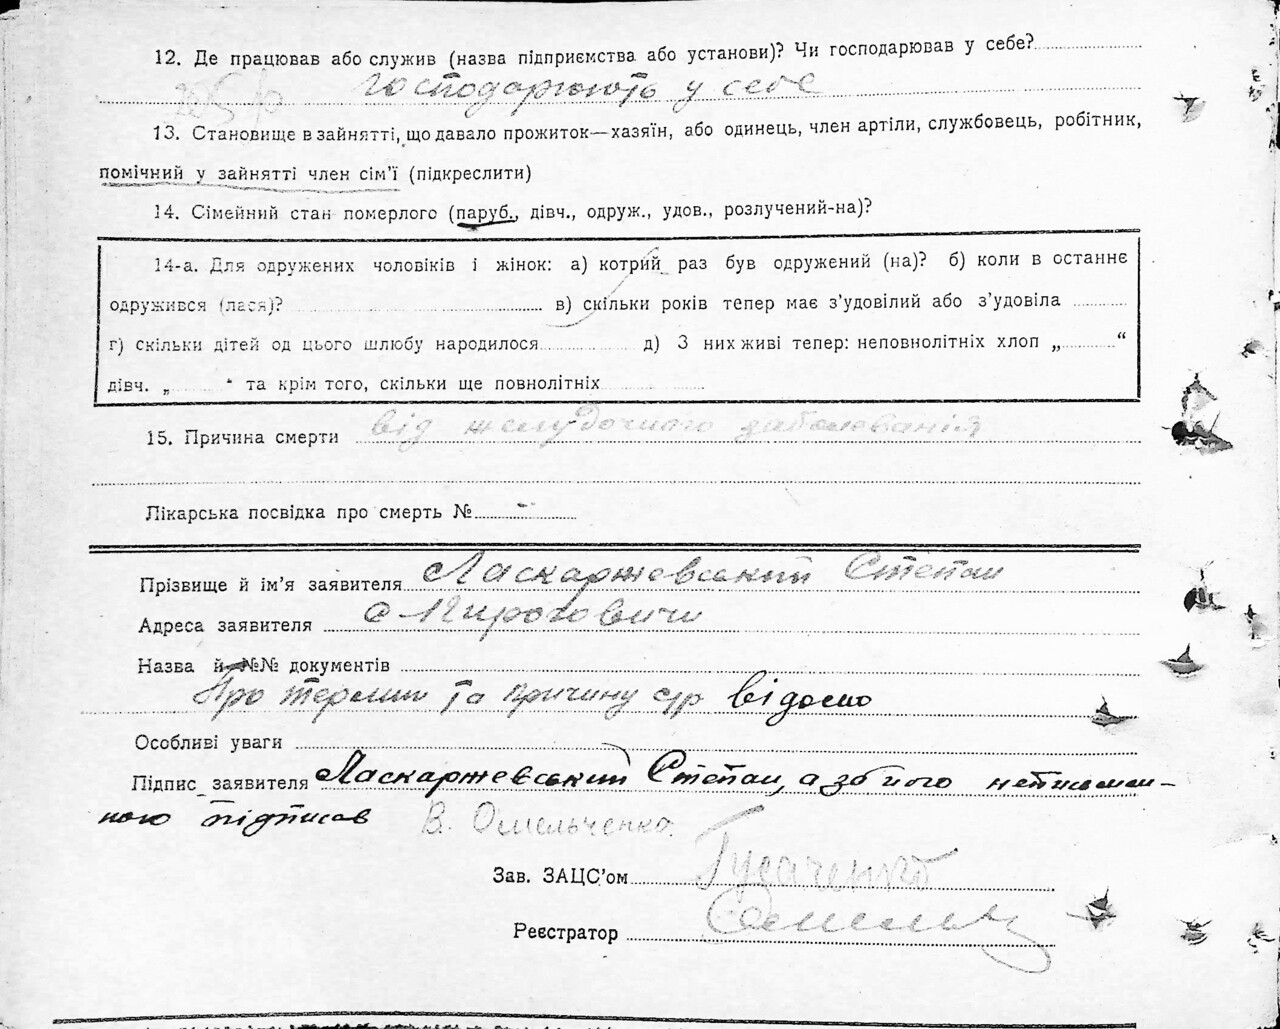 12. Де працював або служив (назва підприємства або установи)? Чи господарював у себе?
господарюють у себе
13. Становище в зайнятті, що давало прожиток—хазяїн, або одинець, член артіли, службовець, робітник,
помічний у зайнятті член сім'ї (підкреслити)
14. Сімейний стан померлого (паруб., дівч., одруж., удов., розлучений-на)?
14-а. Для одружених чоловіків і жінок: а) котрий раз був одружений (на)? б) коли в останнє
одружився (лася)? в) скільки років тепер має з'удовілий або з'удовіла
г) скільки дітей од цього шлюбу народилося д) З них живі тепер: неповнолітніх хлоп „ “
дівч. „ “ та крім того, скільки ще повнолітніх
15. Причина смерти від желудочного заболеванія
Лікарська посвідка про смерть № -
Прізвище й ім'я заявителя Ласкаржевський Степан
Адреса заявителя с
Назва й №№ документів
Про термин та причину відомо
Особливі уваги
Підпис заявителя Ласкаржевський Степан, а за його неписьмен-
ного підписав В. Омельченко
Зав. ЗАЦС'ом
Реєстратор